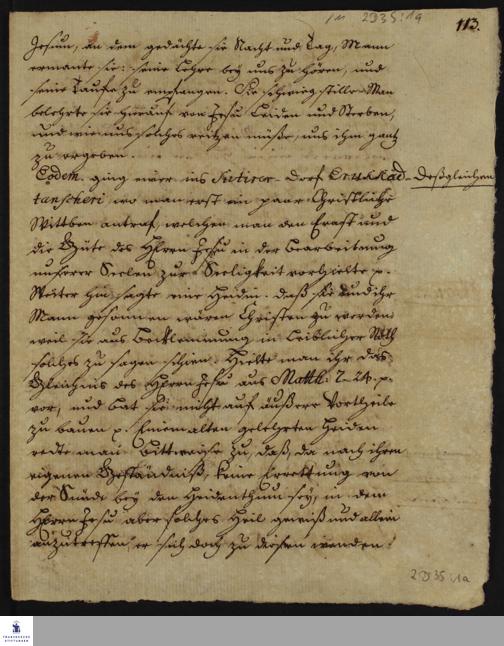 2 D 35 : 1a
113.
Jesum, an dem gedächte sie Nacht und Tag, Mann
ermante sie: seine Lehre bey uns zu hören, und
seine Taufe zu empfangen. Sie schwieg stille. Man
belehrte sie hierauf von Jesu Leiden und Sterben,
und wie uns solches reitzen müße, uns ihm gantz
zu ergeben.
Eodem. ging einer ins Sutirer-Dorf Erukkad-
Deßgleichen
tanscheri, wo man erst ein paar Christliche
Wittben antraf, welchen man den Ernst und
die Güte des HErrn Jesu in der Bearbeitung
unserer Seelen zur Seeligkeit vorhielte p.
Weiter hin sagte eine Heidin: daß sie und ihr
Mann gesonnen wären Christen zu werden
weil sie aus Beklemmung in leiblicher Noth
solches zu sagen schien. Hielte man ihr das
Gleichnis des HErrn Jesu aus Matth: 7-24. p.
vor, und bat sie nicht auf äußere Vortheile
zu bauen p. Einem alten gelehrten Heiden
redte man Bittweise zu, daß, da nach ihrem
eigenen Geständniß, keine Errettung von
der Sünde bey dem Heidenthum sey, in dem
HErrn Jesu aber solches Heil gewiß und allein
anzutreffen, er sich doch zu diesem wenden
2 D 35 : 1a
FRANCKESCHE
STIFTUNGEN